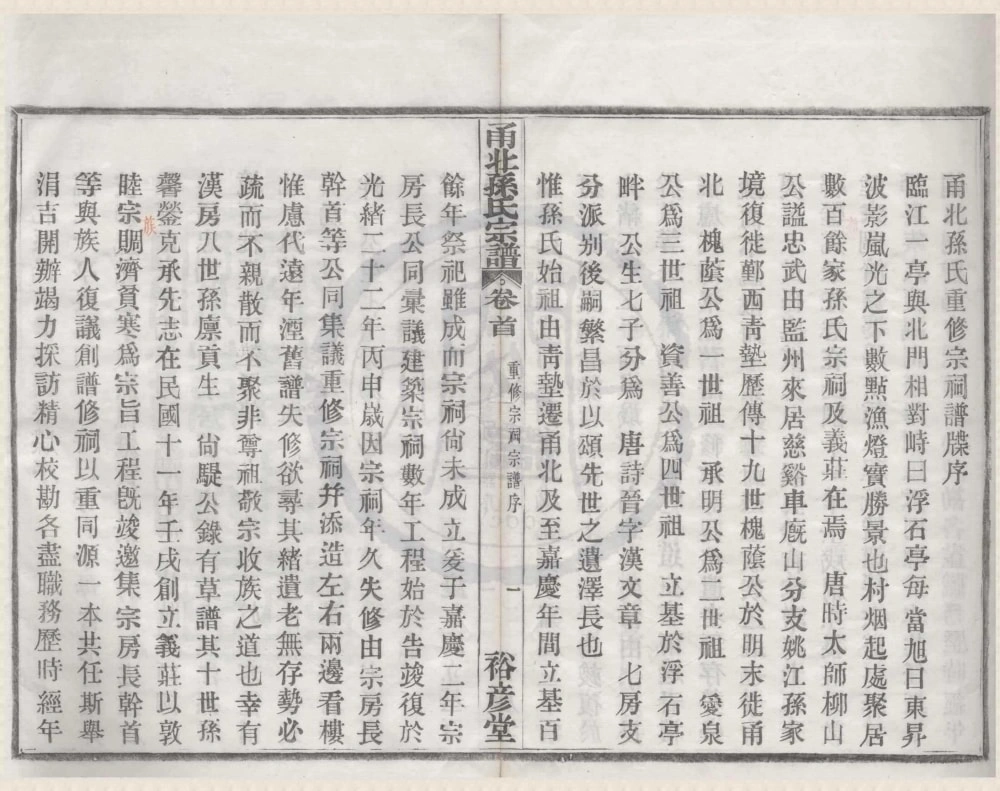 甬北孫氏重修宗祠譜牒序
臨江一亭與北門相對峙曰浮石亭每當旭日東昇
波影嵐光之下數點漁燈實勝景也村烟起處聚居
數百餘家孫氏宗祠及義莊在焉 唐時太師柳山
公謚忠武由監州來居慈谿車廐山分支姚江孫家
境復徙鄞西靑墊歷傳十九世槐蔭公於明末徙甬
北 槐蔭公爲一世祖 承明公爲二世祖 愛泉
公爲三世祖 資善公爲四世祖 立基於浮石亭
畔 公生七子分爲 唐詩晉字漢文章 七房支
分派別後嗣繁昌於以頌先世之遺澤長也
惟孫氏始祖由靑墊遷甬北及至嘉慶年間立基百
甬北孫氏宗譜 卷首 重修宗祠宗譜序 一 裕彥堂
餘年祭祀雖成而宗祠尙未成立爰于嘉慶二年宗
房長公同彙議建築宗祠數年工程始於告竣復於
光緒二十二年丙申歲因宗祠年久失修由宗房長
幹首等公同集議重修宗祠并添造左右兩邊看樓
惟慮代遠年湮舊譜失修欲尋其緖遺老無存勢必
疏而不親散而不聚非尊祖敬宗收族之道也幸有
漢房八世孫廪貢生 尙騠公錄有草譜其十世孫
馨鎣克承先志在民國十一年壬戌創立義莊以敦
族
睦宗賙濟貧寒爲宗旨工程旣竣邀集 宗房長幹首
等與族人復議創譜修祠以重同源一本共任斯舉
涓吉開辦竭力採訪精心校勘各盡職務歷時經年